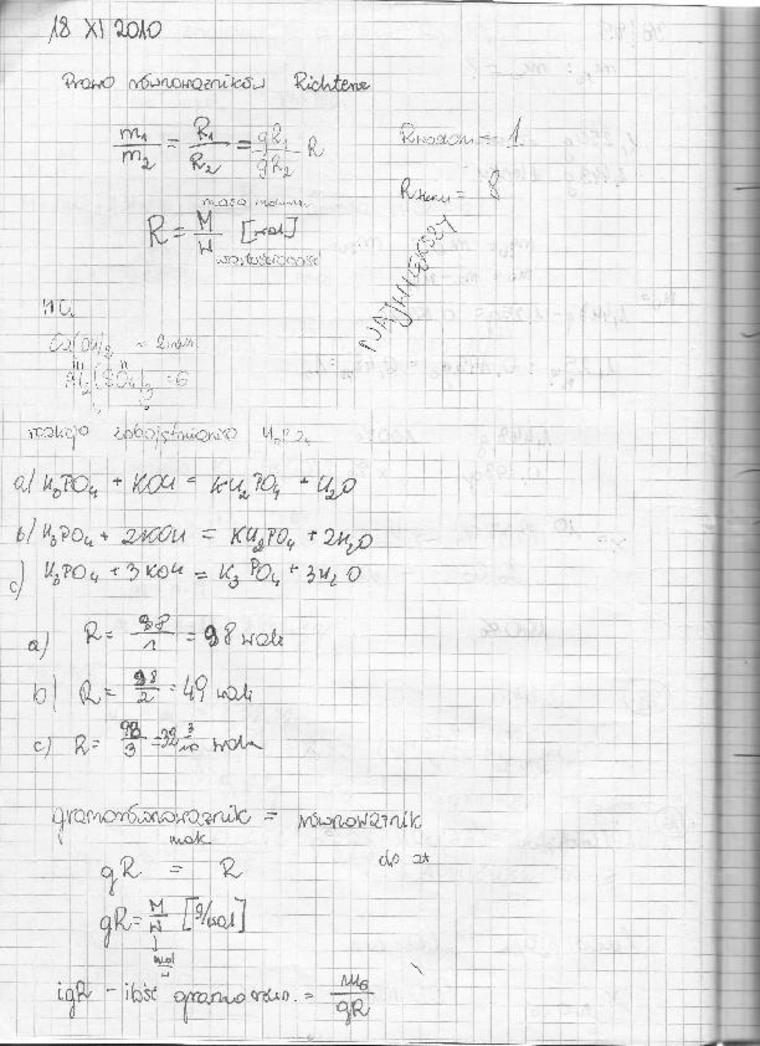 18 XI 2010
Prawo równoważników Richtera
m₁/m₂ = R₁/R₂ = gR₁/gR₂ R
Rwodoru = 1
Rtlenu = 8
NAJWIĘKSZY
masa molowa
R = M/W [wal]
wartościowość
Ca(OH)₂ = 2
Al₂(SO₄)₃ = 6
reakcja zobojętniania H₃PO₄
a) H₃PO₄ + KOH = KH₂PO₄ + H₂O
b) H₃PO₄ + 2KOH = KH₂PO₄ + 2H₂O
c) H₃PO₄ + 3KOH = K₃PO₄ + 3H₂O
a) R = 98/1 = 98 wali
b) R = 98/2 = 49 wali
c) R = 98/3 = 32 3/10 wala
gramorównoważnik = równoważnik
gR = R
gR = M/W [g/wal]
igR - ilość gramorówn. = ms/gR